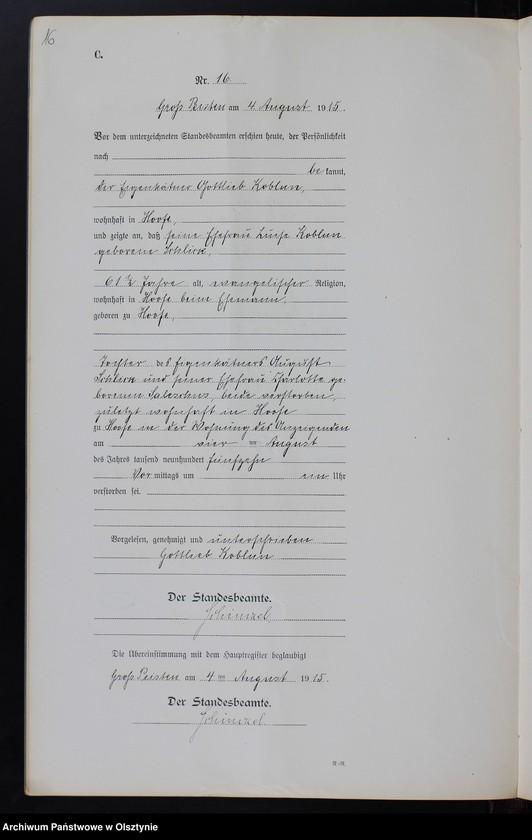 16
C.
Nr. 16
Groß Peisten am 4. August 1915.
Vor dem unterzeichneten Standesbeamten erschien heute, der Persönlichkeit
nach
be kannt,
der Eigenkätner Gottlieb Koblun,
wohnhaft in Hoofe,
und zeigte an, daß seine Ehefrau Luise Koblun
geborene Schlick,
61 1/2 Jahre alt, evangelischer Religion,
wohnhaft in Hoofe beim Ehemann,
geboren zu Hoofe,
Tochter des Eigenkätners August
Schlick und seiner Ehefrau Charlotte ge-
borenen beide verstorben,
zuletzt wohnhaft in Hoofe
zu Hoofe in der Wohnung des Anzeigenden
am vier ten August
des Jahres tausend neunhundert fünfzehn
Vor mittags um ein Uhr
verstorben sei.
Vorgelesen, genehmigt und unterschrieben
Gottlieb Koblun
Der Standesbeamte.
Schinzel
Die Übereinstimmung mit dem Hauptregister beglaubigt
Groß Peisten am 4 ten August 1915.
Der Standesbeamte.
Schinzel
Archiwum Państwowe w Olsztynie